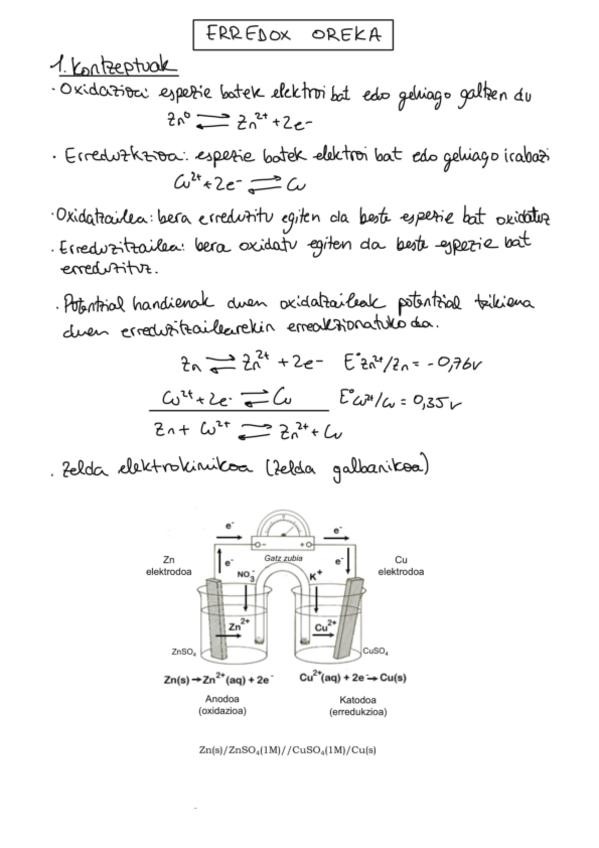 ERREDOX OREKA
1. Kontzeptuak
· Oxidazioa: espezie batek elektroi bat edo gehiago galtzen du
Zn⁰ ⇌ Zn²⁺ + 2e-
· Erredukzioa: espezie batek elektroi bat edo gehiago irabazi
Cu²⁺ + 2e⁻ ⇌ Cu
· Oxidatzailea: bera erreduzitu egiten da beste espezie bat oxidatuz
· Erreduzitzailea: bera oxidatu egiten da beste espezie bat
erreduzituz.
· Potentzial handienak duen oxidatzaileak potentzial txikiena
duen erreduzitzailearekin erreakzionatuko da.
Zn ⇌ Zn²⁺ + 2e- E°Zn²⁺/Zn = -0,76V
Cu²⁺ + 2e- ⇌ Cu E°Cu²⁺/Cu = 0,35V
Zn + Cu²⁺ ⇌ Zn²⁺ + Cu
· Zelda elektrokimikoa (Zelda galbanikoa)
e⁻ e⁻
- +
Zn Gatz zubia Cu
elektrodoa e⁻ e⁻ elektrodoa
NO₃⁻ K⁺
Zn²⁺ Cu²⁺
ZnSO₄ CuSO₄
Zn(s)→Zn²⁺(aq) + 2e⁻ Cu²⁺(aq) + 2e⁻→Cu(s)
Anodoa Katodoa
(oxidazioa) (erredukzioa)
Zn(s)/ZnSO₄(1M)//CuSO₄(1M)/Cu(s)